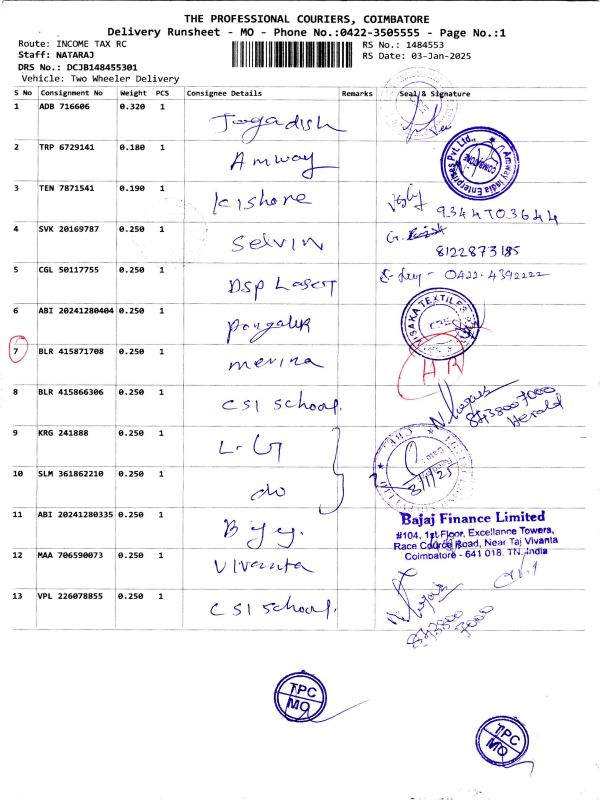 THE PROFESSIONAL COURIERS, COIMBATORE
Delivery Runsheet - MO - Phone No.:0422-3505555 - Page No.:1
Route: INCOME TAX RC RS No.: 1484553
Staff: NATARAJ RS Date: 03-Jan-2025
DRS No.: DCJB148455301
Vehicle: Two Wheeler Delivery
S No Consignment No Weight PCS Consignee Details Remarks Seal & Signature
1 ADB 716606 0.320 1 Jagadish
2 TRP 6729141 0.180 1 Amway
Amway India Enterprises Pvt Ltd.,
COIMBATORE
3 TEN 7871541 0.190 1 Kishore
9344703644
4 SVK 20169787 0.250 1 Selvin G.
8122873185
5 CGL 50117755 0.250 1 DSP Laser 0422-4392222
6 ABI 20241280404 0.250 1
7 BLR 415871708 0.250 1 merina HR
8 BLR 415866306 0.250 1 CSI School.
8438007000
Herald
9 KRG 241888 0.250 1 L-G
8/1/25
10 SLM 361862210 0.250 1 do
11 ABI 20241280335 0.250 1
Bajaj Finance Limited
#104, 1st Floor, Excellance Towers,
Race Cource Road, Near Taj Vivanta
Coimbatore - 641 018. TN. India
12 MAA 706590073 0.250 1 Vivanta
13 VPL 226078855 0.250 1 CSI School.
843800
7000
TPC
MO
TPC
MO